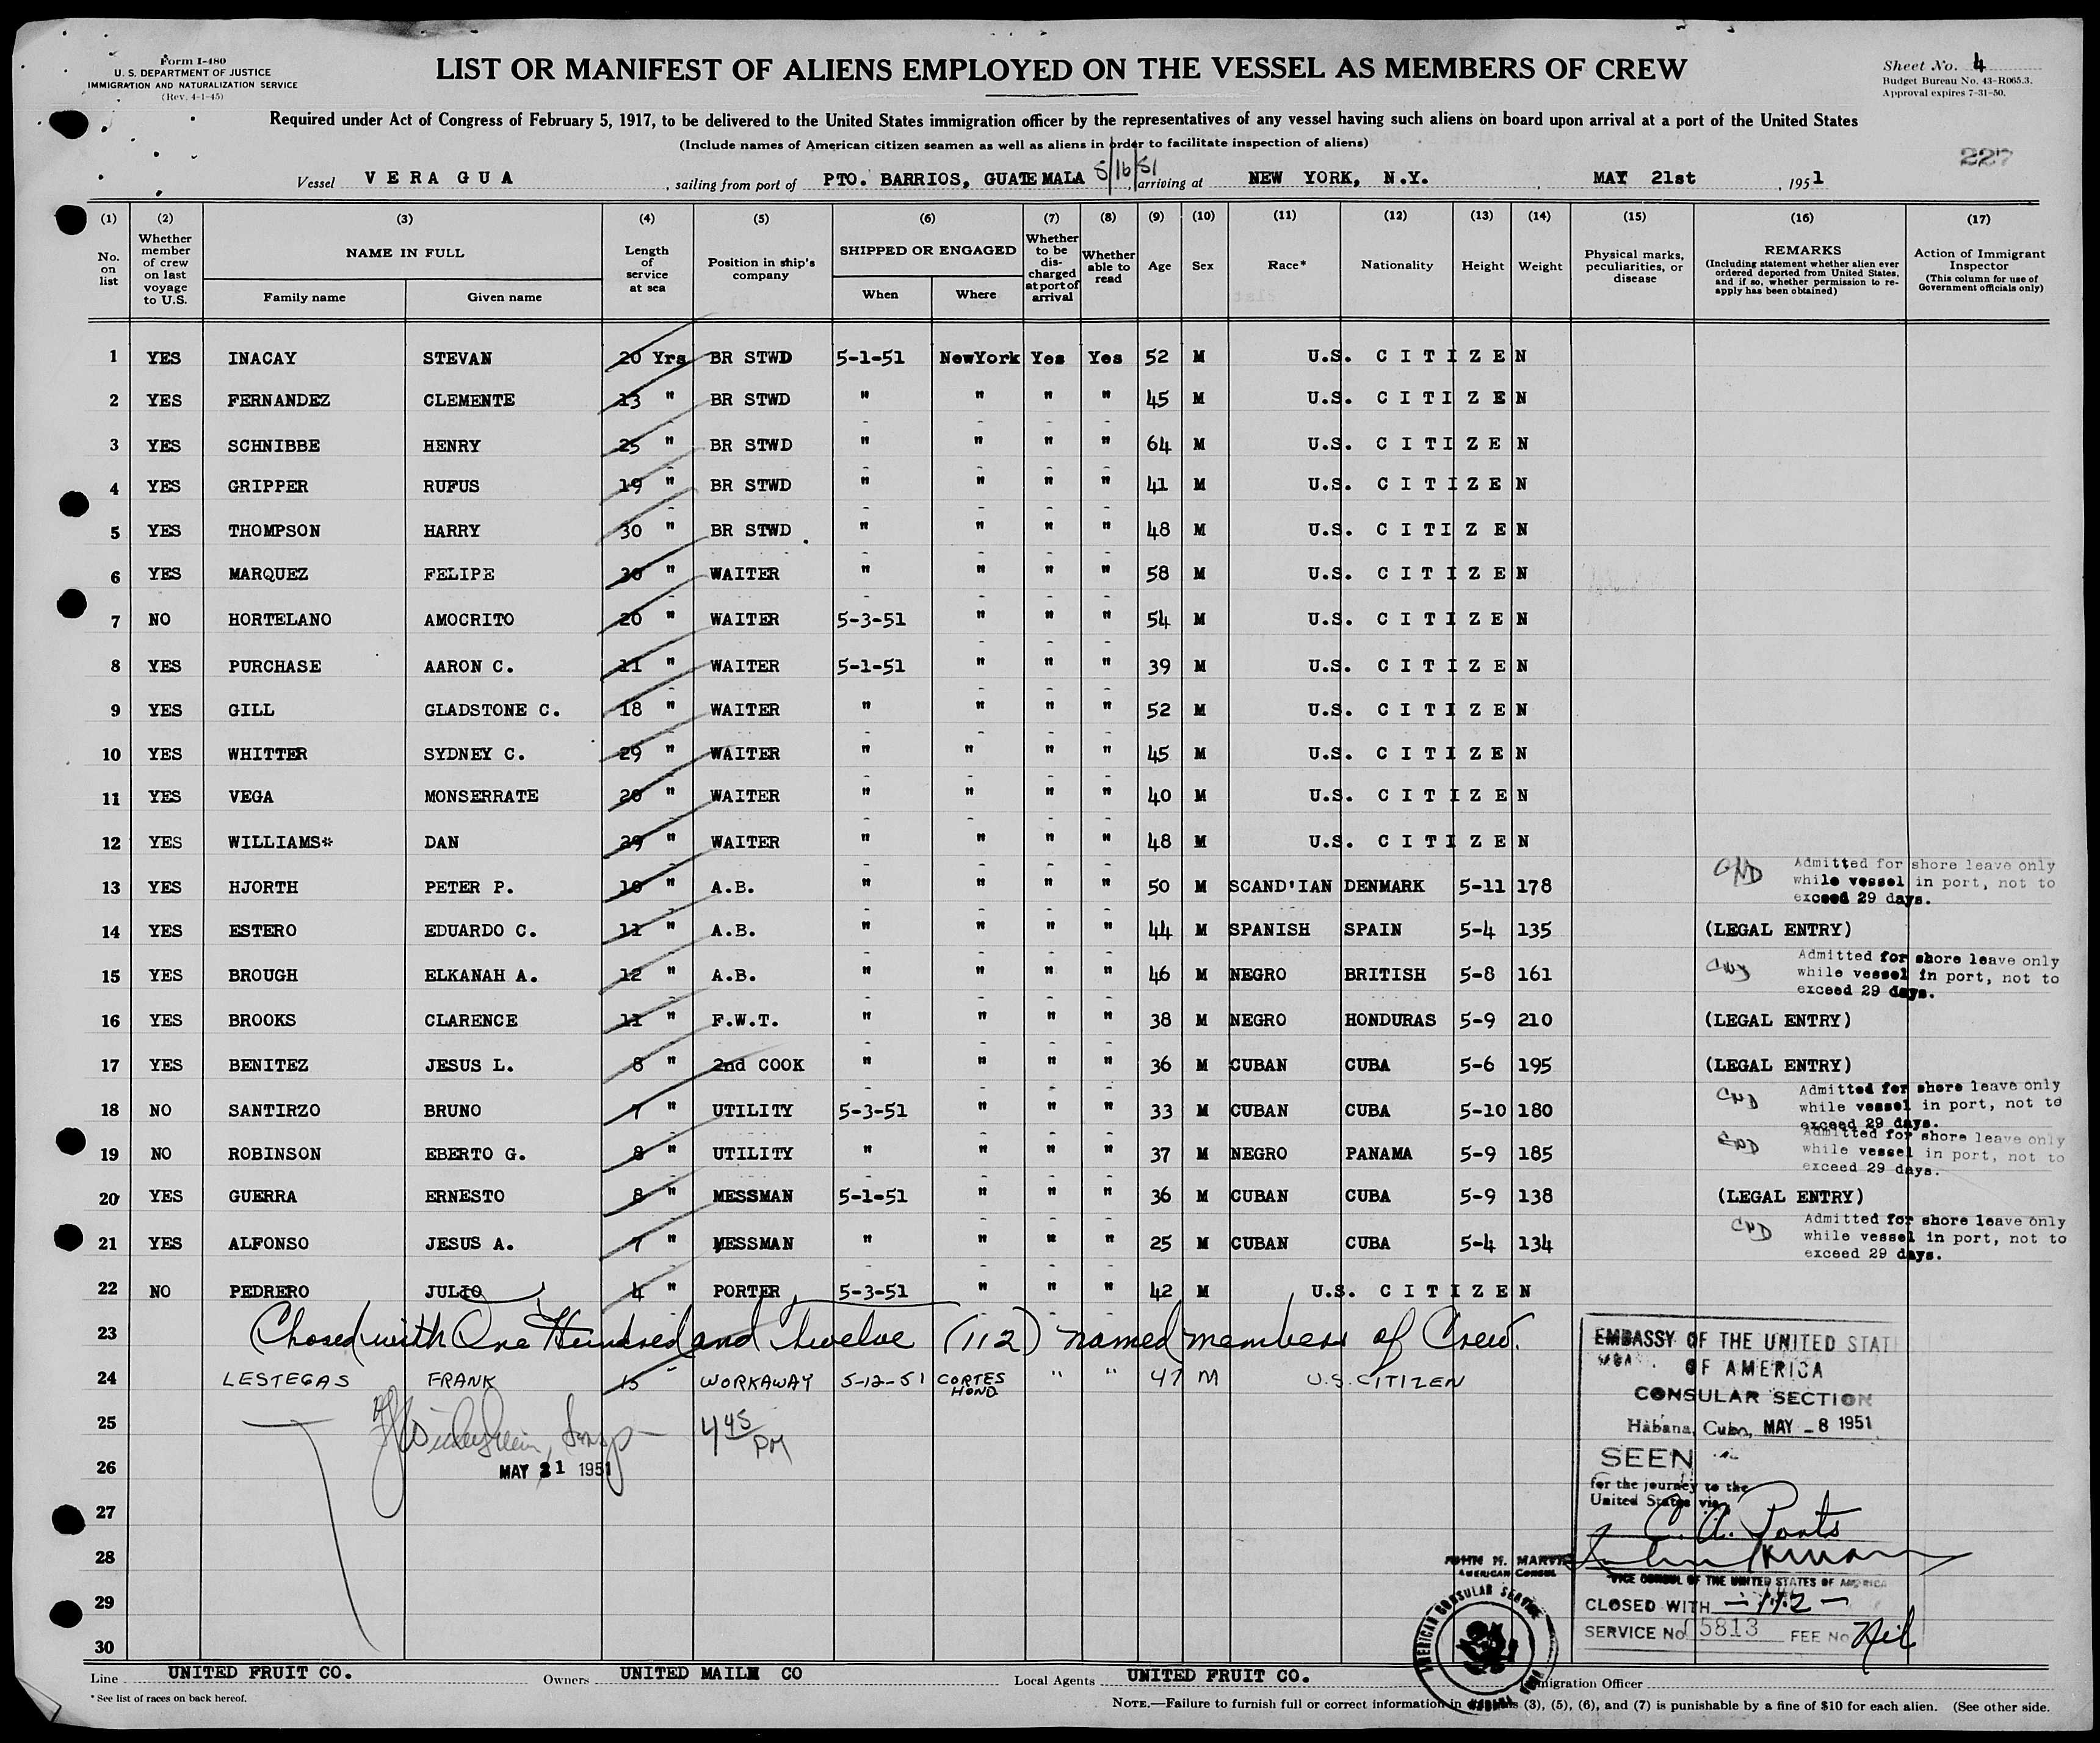 Form I-480
U. S. DEPARTMENT OF JUSTICE
IMMIGRATION AND NATURALIZATION SERVICE
(Rev. 4-1-45)
LIST OR MANIFEST OF ALIENS EMPLOYED ON THE VESSEL AS MEMBERS OF CREW
Sheet No. 4
Budget Bureau No. 43-R065.3.
Approval expires 7-31-50.
Required under Act of Congress of February 5, 1917, to be delivered to the United States immigration officer by the representatives of any vessel having such aliens on board upon arrival at a port of the United States
(Include names of American citizen seamen as well as aliens in order to facilitate inspection of aliens)
227
Vessel VERAGUA, sailing from port of PTO. BARRIOS, GUATEMALA 5/16/51, arriving at NEW YORK, N.Y. MAY 21st, 1951
(1) (2) (3) (4) (5) (6) (7) (8) (9) (10) (11) (12) (13) (14) (15) (16) (17)
No. on list
Whether member of crew on last voyage to U.S.
NAME IN FULL
Family name Given name
Length of service at sea
Position in ship's company
SHIPPED OR ENGAGED
When Where
Whether to be discharged at port of arrival
Whether able to read
Age
Sex
Race*
Nationality
Height
Weight
Physical marks, peculiarities, or disease
REMARKS
(Including statement whether alien ever ordered deported from United States, and if so, whether permission to re-apply has been obtained)
Action of Immigrant Inspector
(This column for use of Government officials only)
1 YES INACAY STEVAN 20 Yrs BR STWD 5-1-51 NewYork Yes Yes 52 M U.S. CITIZEN
2 YES FERNANDEZ CLEMENTE 13 " BR STWD " " " " 45 M U.S. CITIZEN
3 YES SCHNIBBE HENRY 25 " BR STWD " " " " 64 M U.S. CITIZEN
4 YES GRIPPER RUFUS 19 " BR STWD " " " " 41 M U.S. CITIZEN
5 YES THOMPSON HARRY 30 " BR STWD " " " " 48 M U.S. CITIZEN
6 YES MARQUEZ FELIPE 30 " WAITER " " " " 58 M U.S. CITIZEN
7 NO HORTELANO AMOCRITO 20 " WAITER 5-3-51 " " " 54 M U.S. CITIZEN
8 YES PURCHASE AARON C. 11 " WAITER 5-1-51 " " " 39 M U.S. CITIZEN
9 YES GILL GLADSTONE C. 18 " WAITER " " " " 52 M U.S. CITIZEN
10 YES WHITTER SYDNEY C. 29 " WAITER " " " " 45 M U.S. CITIZEN
11 YES VEGA MONSERRATE 20 " WAITER " " " " 40 M U.S. CITIZEN
12 YES WILLIAMS* DAN 29 " WAITER " " " " 48 M U.S. CITIZEN
13 YES HJORTH PETER P. 10 " A.B. " " " " 50 M SCAND'IAN DENMARK 5-11 178 Admitted for shore leave only
while vessel in port, not to
exceed 29 days.
14 YES ESTERO EDUARDO C. 11 " A.B. " " " " 44 M SPANISH SPAIN 5-4 135 (LEGAL ENTRY)
15 YES BROUGH ELKANAH A. 12 " A.B. " " " " 46 M NEGRO BRITISH 5-8 161 Admitted for shore leave only
while vessel in port, not to
exceed 29 days.
16 YES BROOKS CLARENCE 11 " F.W.T. " " " " 38 M NEGRO HONDURAS 5-9 210 (LEGAL ENTRY)
17 YES BENITEZ JESUS L. 8 " 2nd COOK " " " " 36 M CUBAN CUBA 5-6 195 (LEGAL ENTRY)
18 NO SANTIRZO BRUNO 7 " UTILITY 5-3-51 " " " 33 M CUBAN CUBA 5-10 180 Admitted for shore leave only
while vessel in port, not to
exceed 29 days.
19 NO ROBINSON EBERTO G. 8 " UTILITY " " " " 37 M NEGRO PANAMA 5-9 185 Admitted for shore leave only
while vessel in port, not to
exceed 29 days.
20 YES GUERRA ERNESTO 8 " MESSMAN 5-1-51 " " " 36 M CUBAN CUBA 5-9 138 (LEGAL ENTRY)
21 YES ALFONSO JESUS A. 7 " MESSMAN " " " " 25 M CUBAN CUBA 5-4 134 Admitted for shore leave only
while vessel in port, not to
exceed 29 days.
22 NO PEDRERO JULIO 4 " PORTER 5-3-51 " " " 42 M U.S. CITIZEN
23 Closed with One Hundred and Twelve (112) named members of Crew.
24 LESTEGAS FRANK 15 " WORKAWAY 5-12-51 CORTES HOND " " 47 M U.S. CITIZEN
25 4 45 PM
26 MAY 21 1951
27
28
29
30
EMBASSY OF THE UNITED STATES
OF AMERICA
CONSULAR SECTION
Habana, Cuba, MAY - 8 1951
SEEN
for the journey to the
United States via
C. A. Ports
JOHN H. MARVIN
AMERICAN CONSUL
VICE CONSUL OF THE UNITED STATES OF AMERICA
CLOSED WITH - 112 -
SERVICE No 5813 FEE No Nil
AMERICAN CONSULAR SERVICE
Line UNITED FRUIT CO. Owners UNITED MAIL CO Local Agents UNITED FRUIT CO. Immigration Officer
* See list of races on back hereof.
NOTE.—Failure to furnish full or correct information in (3), (5), (6), and (7) is punishable by a fine of $10 for each alien. (See other side.